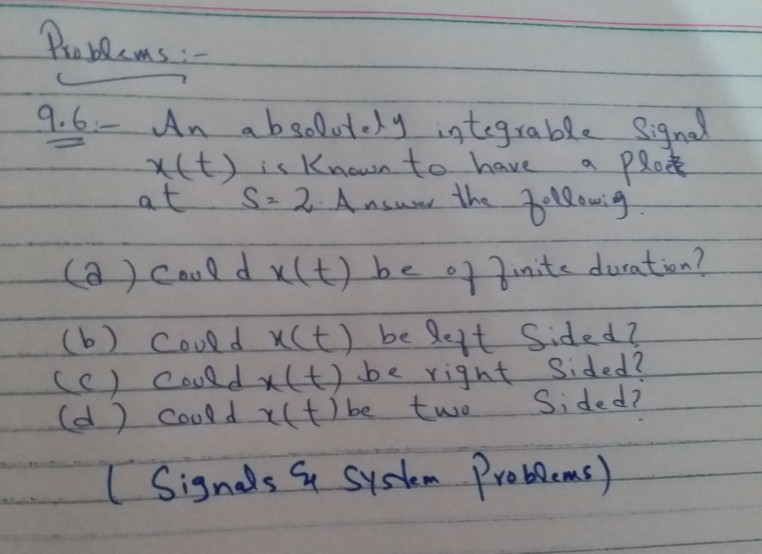 Problems:-
9.6:- An absolutely integrable Signal
x(t) is Known to have a
at S=2. Answer the followig.
(a) Could x(t) be of finite duration?
(b) Could x(t) be left Sided?
(c) Could x(t) be right Sided?
(d) Could x(t) be two Sided?
(Signals & System Problems)